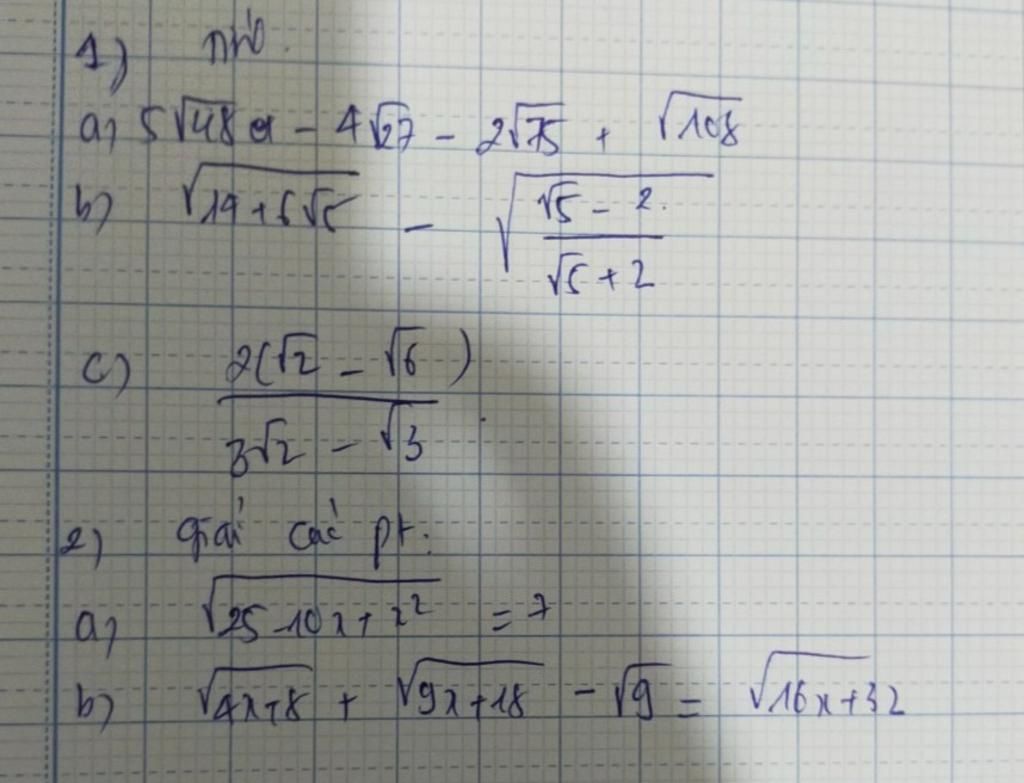 1)
a) 5√48 - 4√27 - 2√75 + √108
b) √(14+6√5) - √((√5 - 2)/(√5 + 2))
c) (2(√2 - √6))/(3√2 - √3)
2) giải các pt:
a) √(25-10x+x²) = 7
b) √(4x+8) + √(9x+18) - √9 = √(16x+32)